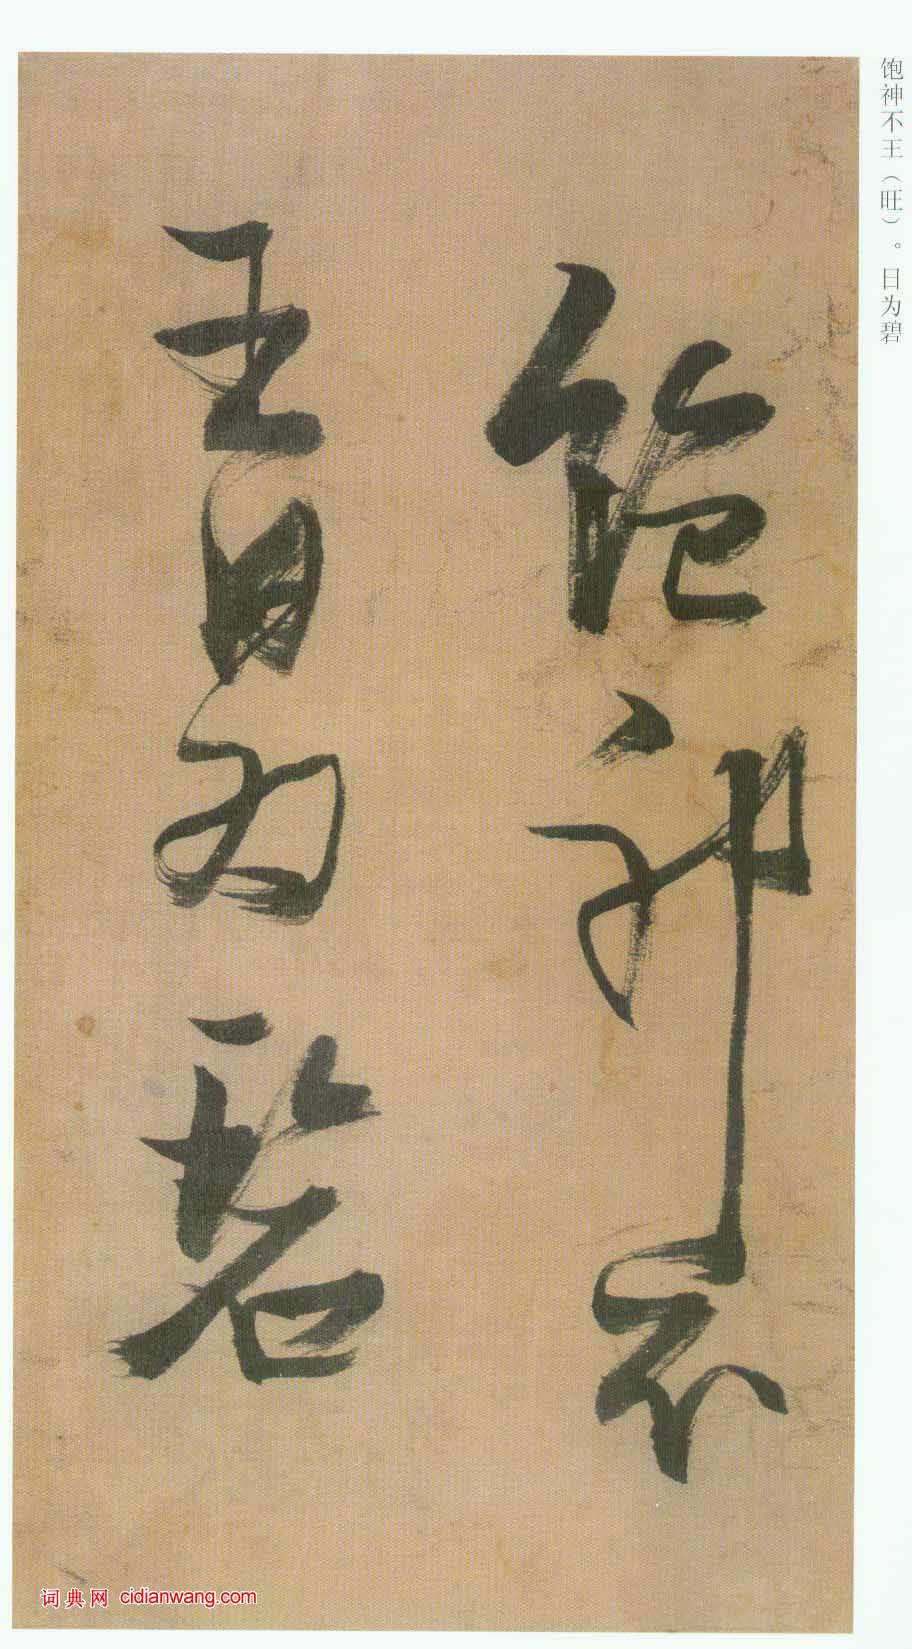 饱神不王（旺）。日为碧
饱神不
王日为碧
词典网 cidianwang.com